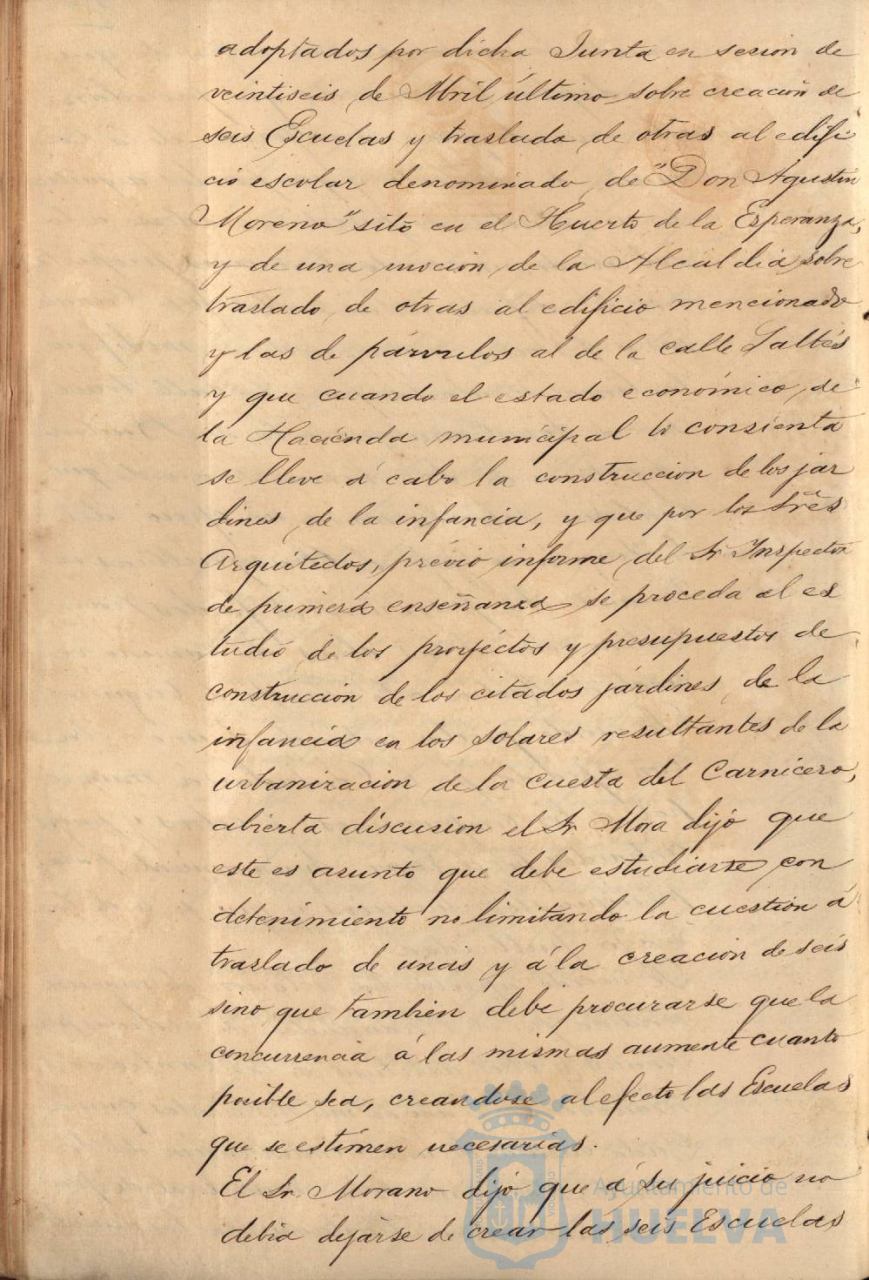 adoptados por dicha Junta en sesion de
veintiseis de Abril último sobre creación de
seis Escuelas y traslado de otras al edifi
cio escolar denominado de "Don Agustin
Moreno" sito en el Huerto de la Esperanza,
y de una mocion de la Alcaldia sobre
traslado de otras al edificio mencionado
y las de párvulos al de la calle Saltés
y que cuando el estado económico de
la Hacienda municipal lo consienta
se lleve á cabo la construccion de los jar
dines de la infancia, y que por los Sres
Arquitectos, prévio informe del Sr Inspector
de primera enseñanza se proceda al es
tudio de los proyectos y presupuestos de
construccion de los citados jardines de la
infancia en los solares resultantes de la
urbanizacion de la cuesta del Carnicero,
abierta discusion el Sr Mora dijo que
este es asunto que debe estudiarse con
detenimiento no limitando la cuestion á
traslado de unas y á la creacion de seis
sino que tambien debe procurarse que la
concurrencia á las mismas aumente cuanto
posible sea, creandose al efecto las Escuelas
que se estimen necesarias.
El Sr. Morano dijo que á su juicio no
debia dejarse de crear las seis Escuelas
Ayuntamiento de
HUELVA